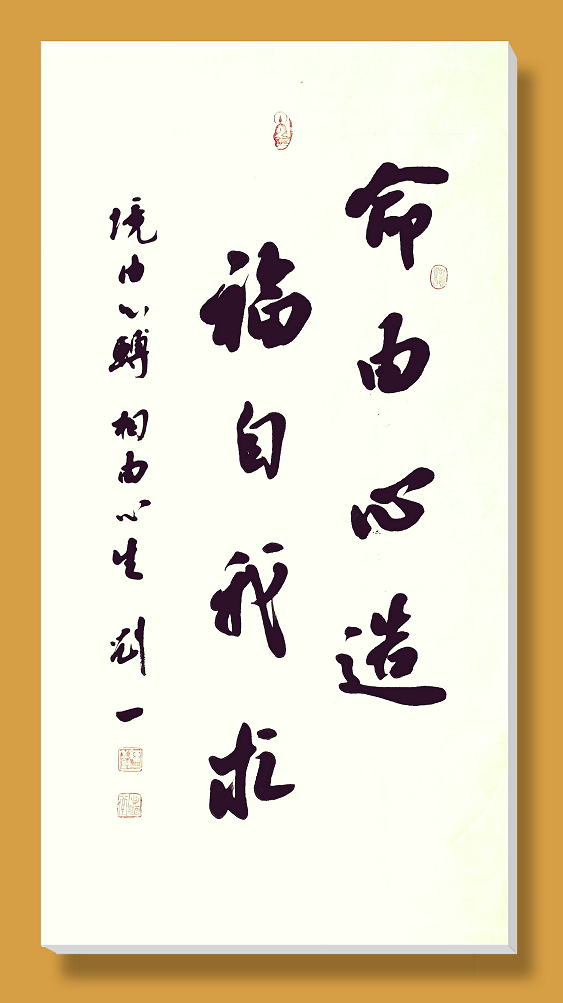 命由心造
福自我求
境由心轉 相由心生 劉一